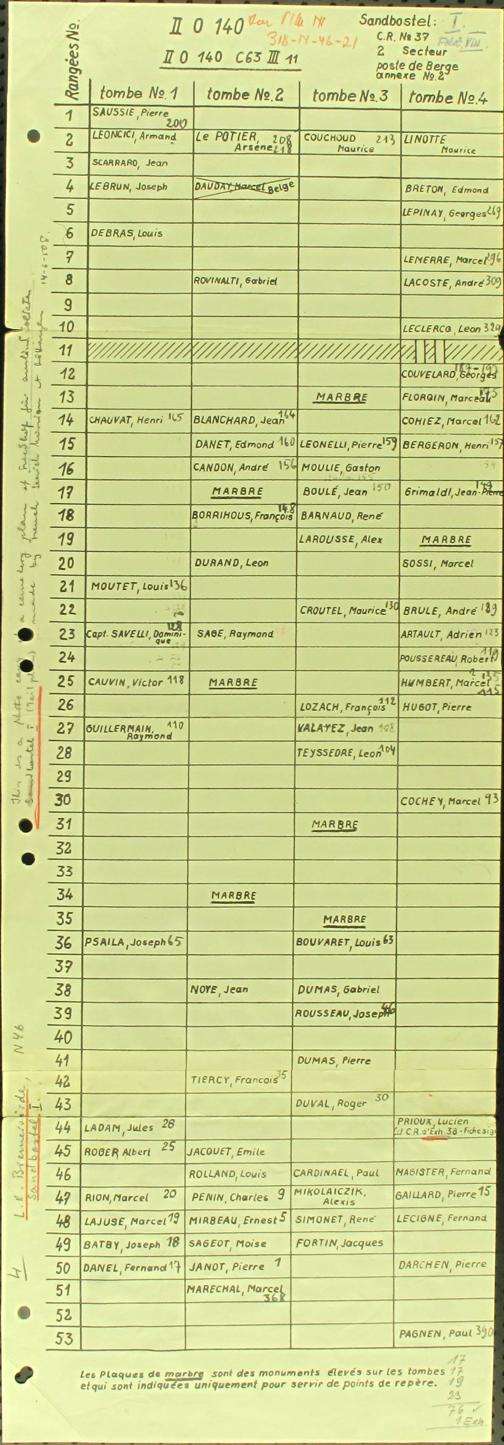 II O 140
318-N-46-21
II O 140 C63 III 11
Sandbostel: I.
C.R. No 37
2 Secteur
poste de Berge
annexe No.2
Rangées No. tombe No.1 tombe No.2 tombe No.3 tombe No.4
1 SAUSSIE, Pierre 200
2 LEONCICI, Armand Le POTIER, Arsène 208 218 COUCHOUD Maurice 213 LINOTTE Maurice
3 SCARRARD, Jean
4 LEBRUN, Joseph DAUDAY, Marcel Belge BRETON, Edmond
5 LEPINAY, Georges 269
6 DEBRAS, Louis
7 LEMERRE, Marcel 296
8 ROVINALTI, Gabriel LACOSTE, André 309
9
10 LECLERCQ, Leon 320
11
12 COUVELARD, Georges
13 MARBRE FLORQIN, Marcel
14 CHAUVAT, Henri 165 BLANCHARD, Jean 164 COHIEZ, Marcel 162
15 DANET, Edmond 160 LEONELLI, Pierre 159 BERGERON, Henri 157
16 CANDON, André 156 MOULIE, Gaston
17 MARBRE BOULÉ, Jean 150 Grimaldi, Jean-Pierre 149
18 BORRIHOUS, François 148 BARNAUD, René
19 LAROUSSE, Alex MARBRE
20 DURAND, Leon SOSSI, Marcel
21 MOUTET, Louis 136
22 CROUTEL, Maurice 130 BRULE, André 189
23 Capt. SAVELLI, Domini-que 128 SAGE, Raymond ARTAULT, Adrien 123
24 POUSSEREAU, Robert 119
25 CAUVIN, Victor 118 MARBRE HUMBERT, Marcel 115
26 LOZACH, François 112 HUGOT, Pierre
27 GUILLERMAIN, Raymond 110 VALAYEZ, Jean 108
28 TEYSSEDRE, Leon 104
29
30 COCHEY, Marcel 93
31 MARBRE
32
33
34 MARBRE
35 MARBRE
36 PSAILA, Joseph 65 BOUVARET, Louis 63
37
38 NOYE, Jean DUMAS, Gabriel
39 ROUSSEAU, Joseph 46
40
41 DUMAS, Pierre
42 TIERCY, Francois 35
43 DUVAL, Roger 30
44 LADAM, Jules 26 PRIOUX, Lucien
45 ROGER, Albert 25 JACQUET, Emile
46 ROLLAND, Louis CARDINAEL, Paul MAGISTER, Fernand
47 RION, Marcel 20 PENIN, Charles 9 MIKOLAICZIK, Alexis GAILLARD, Pierre 15
48 LAJUSE, Marcel 19 MIRBEAU, Ernest 5 SIMONET, René LECIGNE, Fernand
49 BATBY, Joseph 18 SAGEOT, Moise FORTIN, Jacques
50 DANEL, Fernand 17 JANOT, Pierre 1 DARCHEN, Pierre
51 MARECHAL, Marcel 368
52
53 PAGNEN, Paul 390
Les Plaques de marbre sont des monuments élevés sur les tombes
et qui sont indiquées uniquement pour servir de points de repère.
17
17
19
23
76
1 Exh
This is a photo
Sandbostel I
L.K. Bremervörde, N46
Sandbostel I.
4